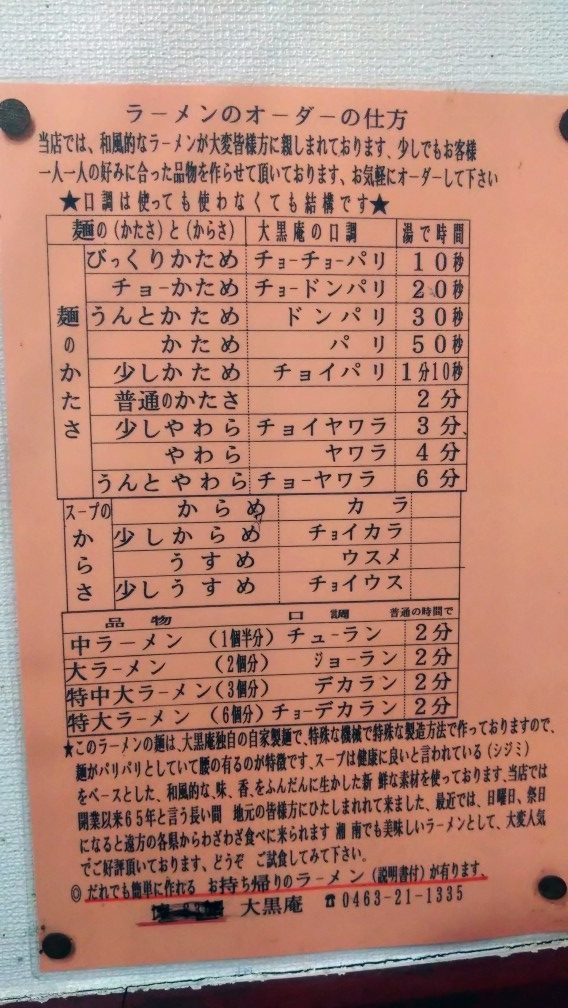 ラーメンのオーダーの仕方
当店では、和風的なラーメンが大変皆様方に親しまれております、少しでもお客様
一人一人の好みに合った品物を作らせて頂いております、お気軽にオーダーして下さい
★口調は使っても使わなくても結構です★
麺の(かたさ)と(からさ) 大黒庵の口調 湯で時間
麺のかたさ
びっくりかため チョーチョーパリ 10秒
チョーかため チョードンパリ 20秒
うんとかため ドンパリ 30秒
かため パリ 50秒
少しかため チョイパリ 1分10秒
普通のかたさ 2分
少しやわら チョイヤワラ 3分、
やわら ヤワラ 4分
うんとやわら チョーヤワラ 6分
スープのからさ
からめ カラ
少しからめ チョイカラ
うすめ ウスメ
少しうすめ チョイウス
品物 口調 普通の時間で
中ラーメン (1個半分) チューラン 2分
大ラーメン (2個分) ジョーラン 2分
特中大ラーメン(3個分) デカラン 2分
特大ラーメン (6個分) チョーデカラン 2分
★このラーメンの麺は、大黒庵独自の自家製麺で、特殊な機械で特殊な製造方法で作っておりますので、
麺がパリパリとしていて腰の有るのが特徴です、スープは健康に良いと言われている(シジミ)
をベースとした、和風的な、味、香、をふんだんに生かした新鮮な素材を使っております、当店では
開業以来65年と言う長い間 地元の皆様方にひたしまれて来ました、最近では、日曜日、祭日
になると遠方の各県からわざわざ食べに来られます 湘南でも美味しいラーメンとして、大変人気
でご好評頂いております、どうぞ ご試食してみて下さい。
◎だれでも簡単に作れる お持ち帰りのラーメン(説明書付)が有ります、
大黒庵 ☎0463-21-1335